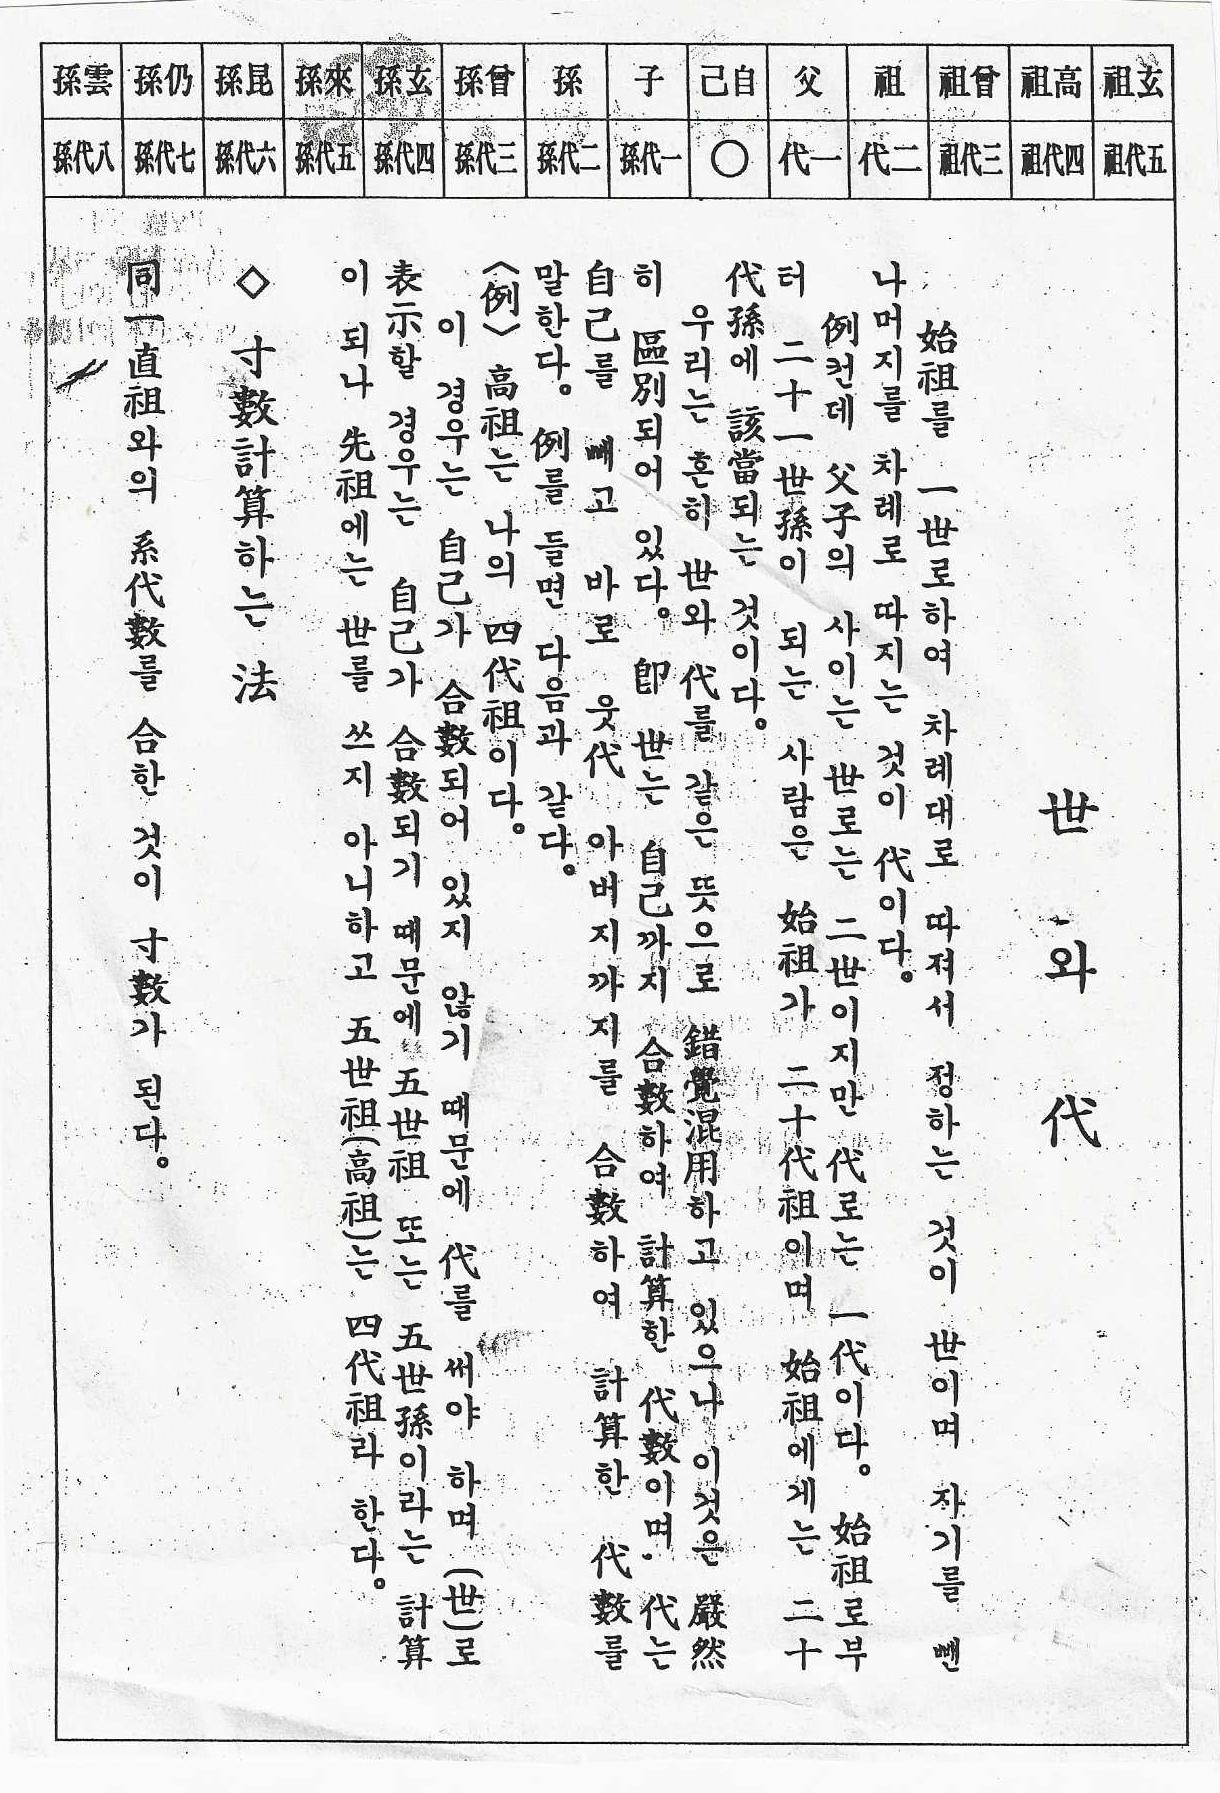 玄祖 高祖 曾祖 祖 父 自己 子 孫 曾孫 玄孫 來孫 昆孫 仍孫 雲孫
五代祖 四代祖 三代祖 二代 一代 ○ 一代孫 二代孫 三代孫 四代孫 五代孫 六代孫 七代孫 八代孫
世와 代
始祖를 一世로하여 차례대로 따져서 정하는 것이 世이며 자기를 뺀
나머지를 차례로 따지는 것이 代이다。
例컨데 父子의 사이는 世로는 二世이지만 代로는 一代이다。 始祖로부
터 二十一世孫이 되는 사람은 始祖가 二十代祖이며 始祖에게는 二十
代孫에 該當되는 것이다。
우리는 흔히 世와 代를 같은 뜻으로 錯覺混用하고 있으나 이것은 嚴然
히 區別되어 있다。 卽 世는 自己까지 合數하여 計算한 代數이며· 代는
自己를 빼고 바로 웃代 아버지까지를 合數하여 計算한 代數를
말한다。 例를 들면 다음과 같다。
〈例〉 高祖는 나의 四代祖이다。
이 경우는 自己가 合數되어 있지 않기 때문에 代를 써야 하며 (世)로
表示할 경우는 自己가 合數되기 때문에 五世祖 또는 五世孫이라는 計算
이 되나 先祖에는 世를 쓰지 아니하고 五世祖(高祖)는 四代祖라 한다。
◇ 寸數計算하는 法
同一直祖와의 系代數를 合한 것이 寸數가 된다。